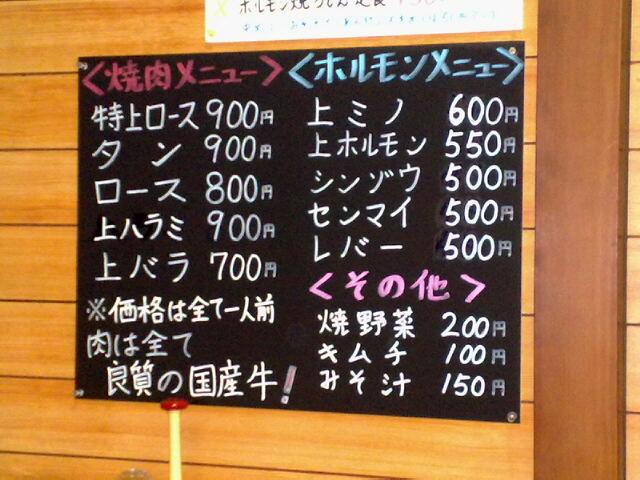 ホルモン焼うどん定食
<焼肉メニュー>
特上ロース 900円
タン 900円
ロース 800円
上ハラミ 900円
上バラ 700円
※価格は全て一人前
肉は全て
良質の国産牛!
<ホルモンメニュー>
上ミノ 600円
上ホルモン 550円
シンゾウ 500円
センマイ 500円
レバー 500円
<その他>
焼野菜 200円
キムチ 100円
みそ汁 150円